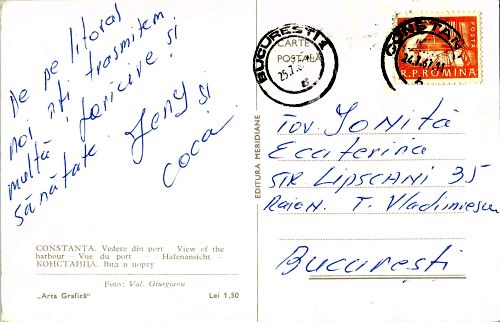 De pe litoral
noi vă trasmitem
multă fericire și
sănătate. Jeny și
Coca
CONSTANȚA. Vedere din port - View of the
harbour - Vue du port - Hafenansicht -
КОНСТАНЦА. Вид в порту
Foto: Val. Giurgianu
„Arta Grafică”
Lei 1,50
EDITURA MERIDIANE
CARTE
POSTALĂ
BUCUREȘTI 1
CONSTANȚA
POSTA
R.P.ROMINA
Tov. IONIȚĂ
Ecaterina
STR Lipscani 35
Raion. T. Vladimirescu
București